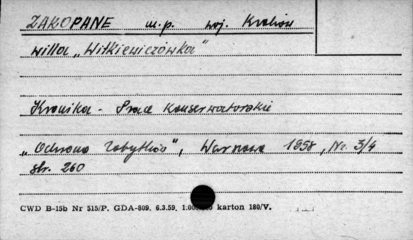 ZAKOPANE m.p. woj. Kraków
willa „Witkiewiczówka"
Kronika - Prace konserwatorskie
„Ochrona Zabytków", Warszawa 1958, Nr. 3/4
str. 260
CWD B-15b Nr 515/P. GDA-809. 6.3.59. karton 180/V.